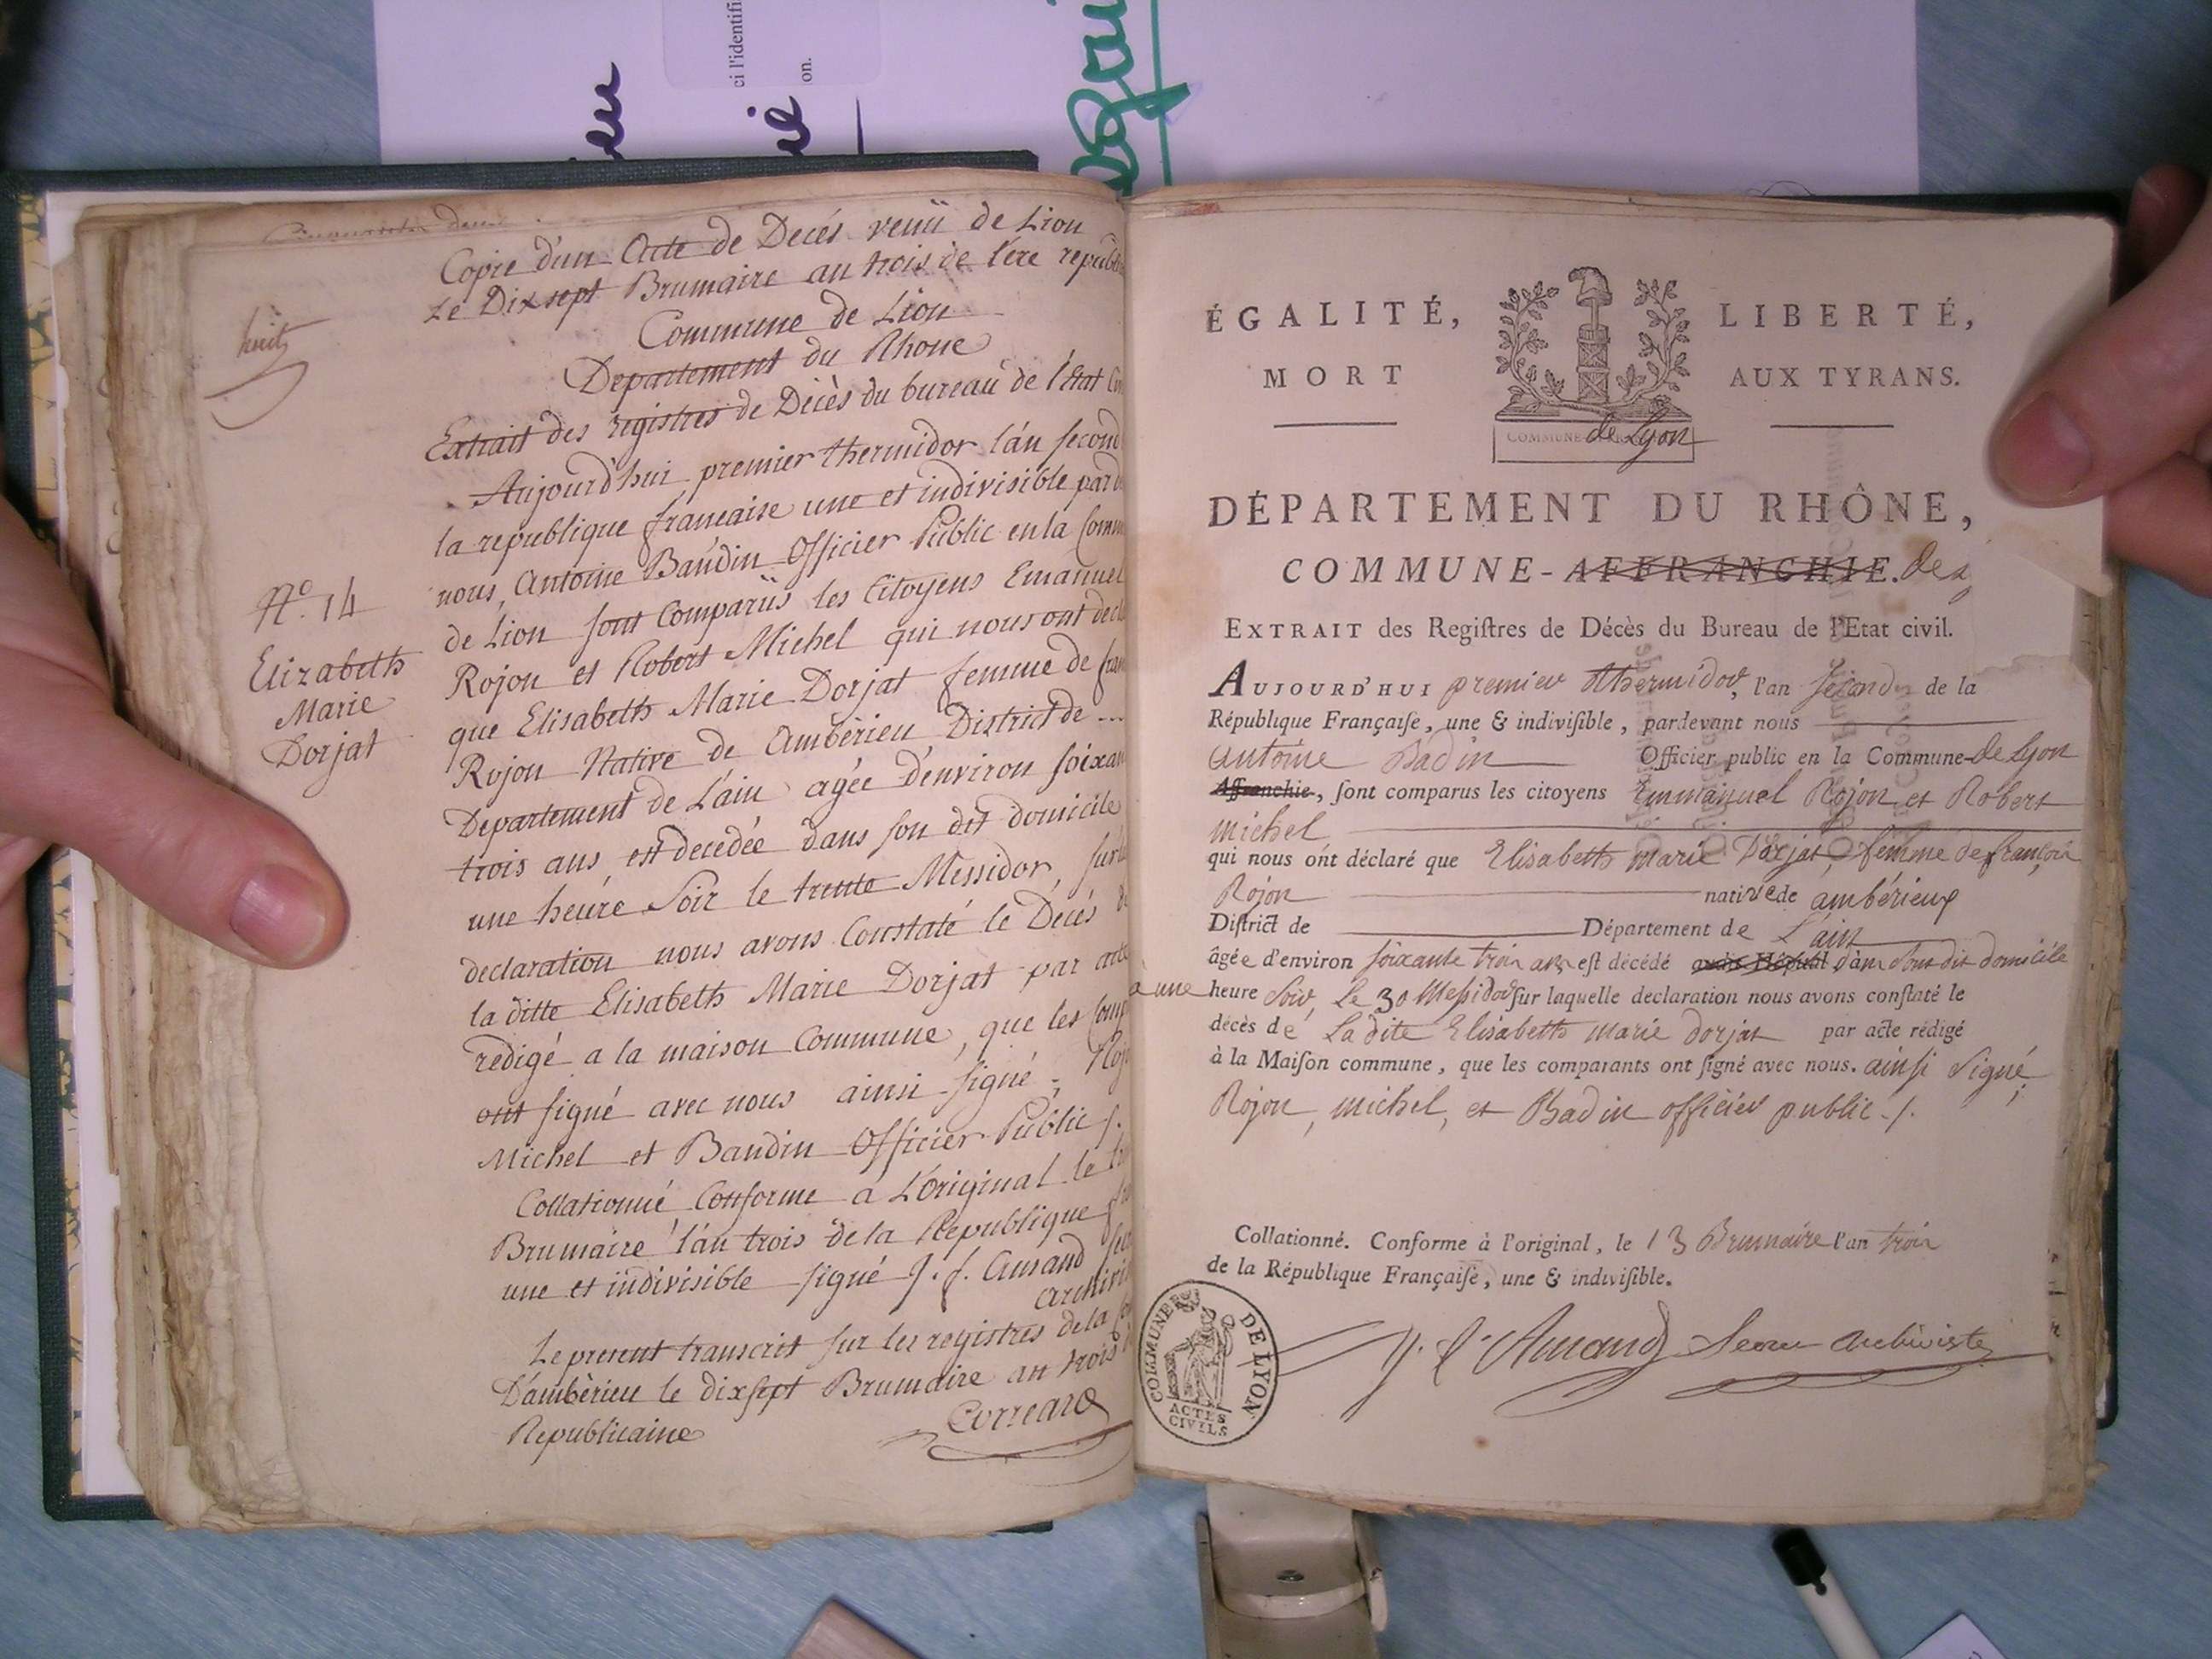 ci l'identifi
on.
huit
Copie d'un Acte de Decés venü de Lion
Le Dix sept Brumaire an trois de l'ere republi
Commune de Lion
Departement du Rhone
Extrait des registres de Décès du bureau de l'Etat Civ
Aujourd'hui premier thermidor l'an second
la republique francaise une et indivisible pard
nous, Antoine Baudin Officier Public en la Comm
de Lion sont Comparüs les Citoyens Emanuel
Rojon et Robert Michel qui nous ont decla
que Elisabeth Marie Dorjat femme de fran
Rojon Native de Ambèrieu District de ...
Departement de L'ain agée d'environ soixan
trois ans, est decedée dans son dit domicile
une heure Soir le trente Messidor, sur la
declaration nous avons Constaté le Décès de
la ditte Elisabeth Marie Dorjat par acte
redigé a la maison Commune, que les Comp
ont signé avec nous ainsi signé, Rojo
Michel et Baudin Officier Public /.
Collationné Conforme a L'original le
Brumaire l'an trois de la Republique
une et indivisible signé J. f. Amand
archivis
Le present transcrit sur les registres de la
D'ambèrieu le dix sept Brumaire an trois
Republicaine
Correard
N.º 14
Elizabeth
Marie
Dorjat
ÉGALITÉ, LIBERTÉ,
MORT AUX TYRANS.
COMMUNE de Lyon
DÉPARTEMENT DU RHÔNE,
COMMUNE-AFFRANCHIE.
EXTRAIT des Regiſtres de Décès du Bureau de l'Etat civil.
AUJOURD'HUI premier thermidor, l'an second de la
République Françaiſe, une & indiviſible, pardevant nous
antoine Badin Officier public en la Commune-de Lyon
Affranchie, ſont comparus les citoyens Emmanuel Rojon et Robert
michel
qui nous ont déclaré que Elisabeth marie Dorjat, femme de françois
Rojon native de ambérieux
Diſtrict de Département de L'ain
âgée d'environ soixante trois ans eſt décédé dans son dit domicile
à une heure soir, le 30 Messidor ſur laquelle declaration nous avons conſtaté le
décès de La dite Elisabeth marie dorjat par acte rédigé
à la Maiſon commune, que les comparants ont ſigné avec nous. ainsi signé,
Rojon, michel, et Badin officier public ./.
Collationné. Conforme à l'original, le 13 Brumaire l'an trois
de la République Françaiſe, une & indiviſible.
COMMUNE DE LYON
ACTES
CIVILS
J. f. Amand Secre archiviste